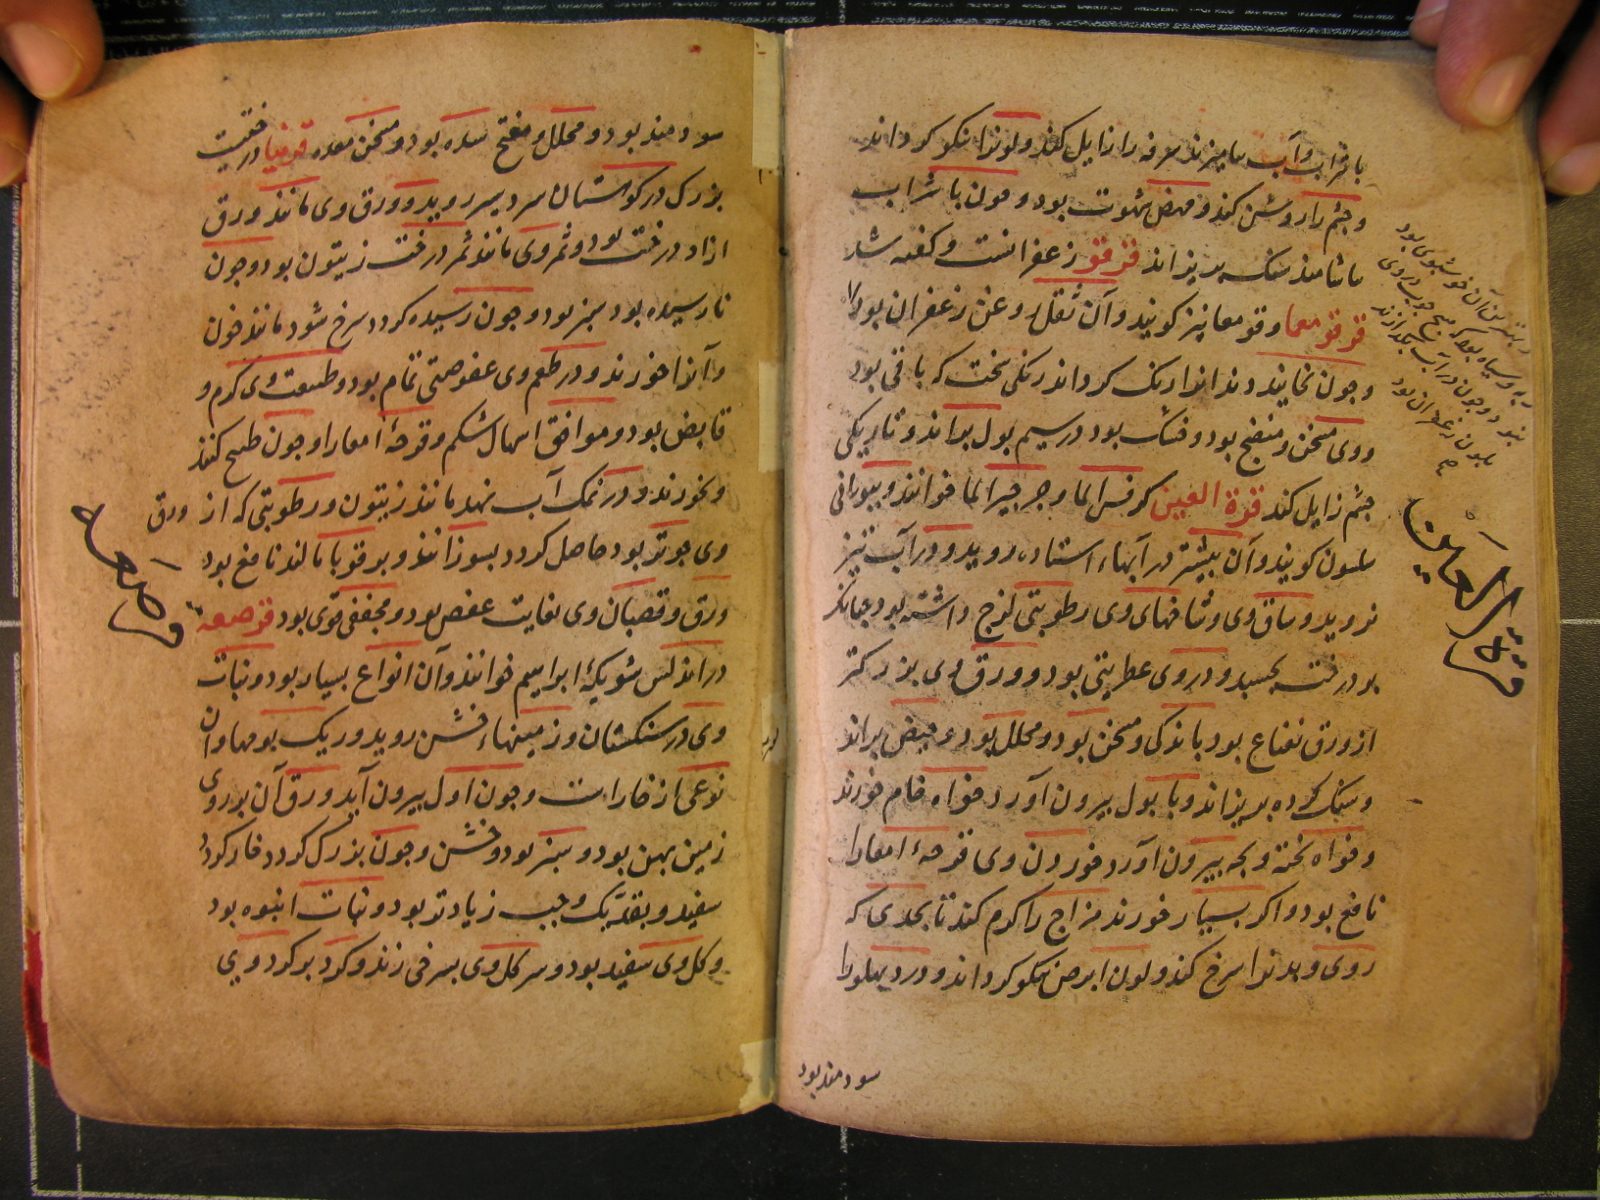 با شراب و آب بیامیزند سرفه را زایل کند و لونرا نیکو کرداند
و چشم را روشن کند و مهضل شهوت بود و چون با شراب
بیاشامند سنک بریزاند قرقو زعفرانست و کفته شد
قرقومعما و قومعما نیز کویند و آن ثقل روغن زعفران بود
و چون بخایند دندانرا رنک کرداند رنکی سخت که باقی بود
و وی مسخن و منضج بود و خشک بود در سیم بول براند و تاریکی
چشم زایل کند قرة العین کرفس الما و جرجیر الما خوانند و بیونانی
سلیون کویند و آن بیشتر در آبهاء استاده روید و در آب نیز
بروید و ساق وی و شاخهای وی رطوبتی لزج داشته بود چنانکه
بر درخت بچسبد و در وی عطریتی بود و ورق وی بزرکتر
از ورق نعناع بود باندکی و مسخن بود و محلل بود و حیض براند
و سنک کرده بریزاند و با بول بیرون آورد خواه خام خورند
و خواه پخته و بچه بیرون آورد خوردن وی قرحهٔ امعا را
نافع بود و اکر بسیار خورند مزاج را کرم کند تا بحدی که
روی و بدنرا سرخ کند و لون ابرص نیکو کرداند و درد پهلو را
سودمند بود
قرة العین
سودمند بود و محلل و مفتح سده بود و مسخن معده قرنیا درختیست
بزرک در کوهستان سردسیر روید و ورق وی مانند ورق
ازاد درخت بود و ثمر وی مانند ثمر درخت زیتون بود و چون
نارسیده بود سبز بود و چون رسیده کردد سرخ شود مانند خون
و آنرا خورند و در طعم وی عفوصتی تمام بود و طبیعت وی کرم و
قابض بود و موافق اسهال شکم و قرحهٔ امعا را و چون طبخ کنند
و بخورند و در نمک آب نهند مانند زیتون و رطوبتی که از ورق
وی چو تر بود حاصل کردد بسوزانند و بر قوبا مالند نافع بود
ورق و قضبان وی بغایت عفص بود و مجففی قوی بود قرصعنه
در اندلس شویکهٔ ابراهیم خوانند و آن انواع بسیار بود و نبات
وی در سنکستان و زمینهاء خشن روید و ریک بومها و آن
نوعی از خارات و چون اول بیرون آید ورق آن بر روی
زمین پهن بود و سبز بود و خشن و چون بزرک کردد خار کردد
سفید و بقد یک وجب زیادتر بود و نبات انبوه بود
و کل وی سفید بود و سر کل وی بسرخی زند و کرد بر کرد وی
قرصعنه